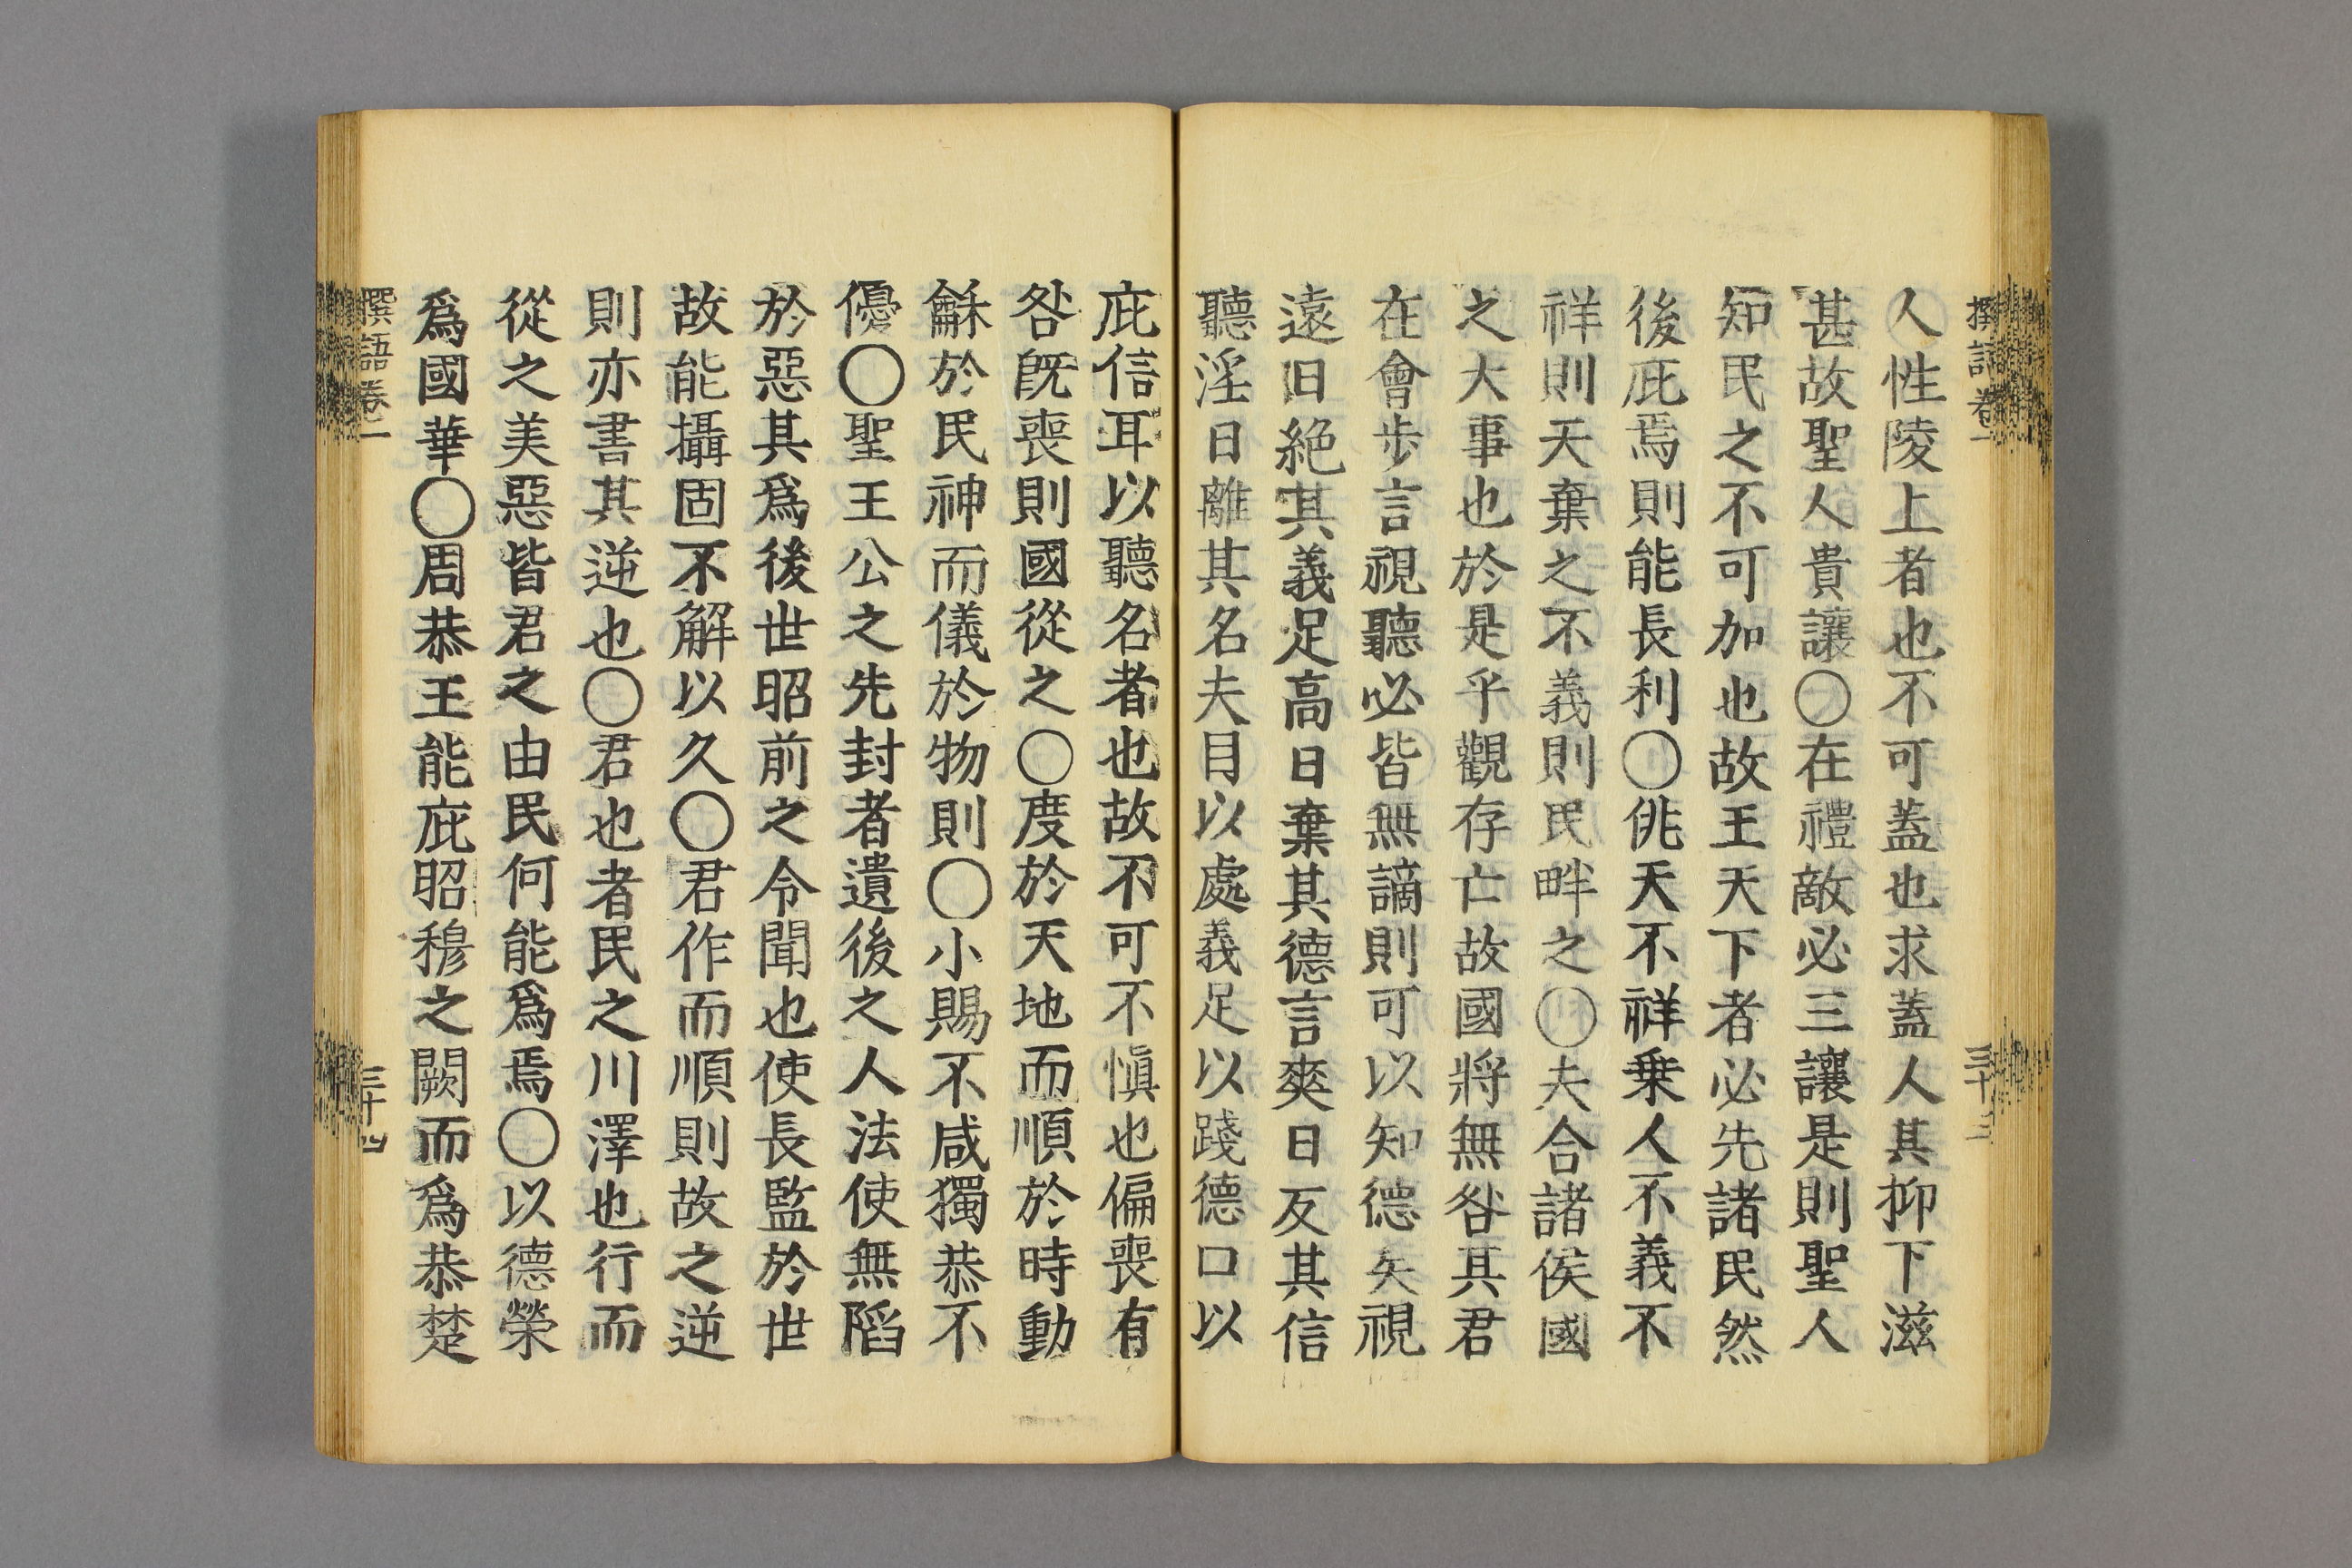 撰語卷一
三十三
人性陵上者也不可蓋也求蓋人其抑下滋
甚故聖人貴讓〇在禮敵必三讓是則聖人
知民之不可加也故王天下者必先諸民然
後庇焉則能長利〇佻天不祥乗人不義不
祥則天棄之不義則民畔之〇夫合諸侯國
之大事也於是乎觀存亡故國將無咎其君
在會步言視聽必皆無謫則可以知德矣視
遠日絶其義足高日棄其德言爽日反其信
聽淫日離其名夫目以處義足以踐德口以
庇信耳以聽名者也故不可不慎也偏喪有
咎旣喪則國從之〇度於天地而順於時動
龢於民神而儀於物則〇小賜不咸獨恭不
優〇聖王公之先封者遺後之人法使無陷
於惡其爲後世昭前之令聞也使長監於世
故能攝固不解以久〇君作而順則故之逆
則亦書其逆也〇君也者民之川澤也行而
從之美惡皆君之由民何能爲焉〇以德榮
爲國華〇周恭王能庇昭穆之闕而爲恭楚
撰語卷一
三十四